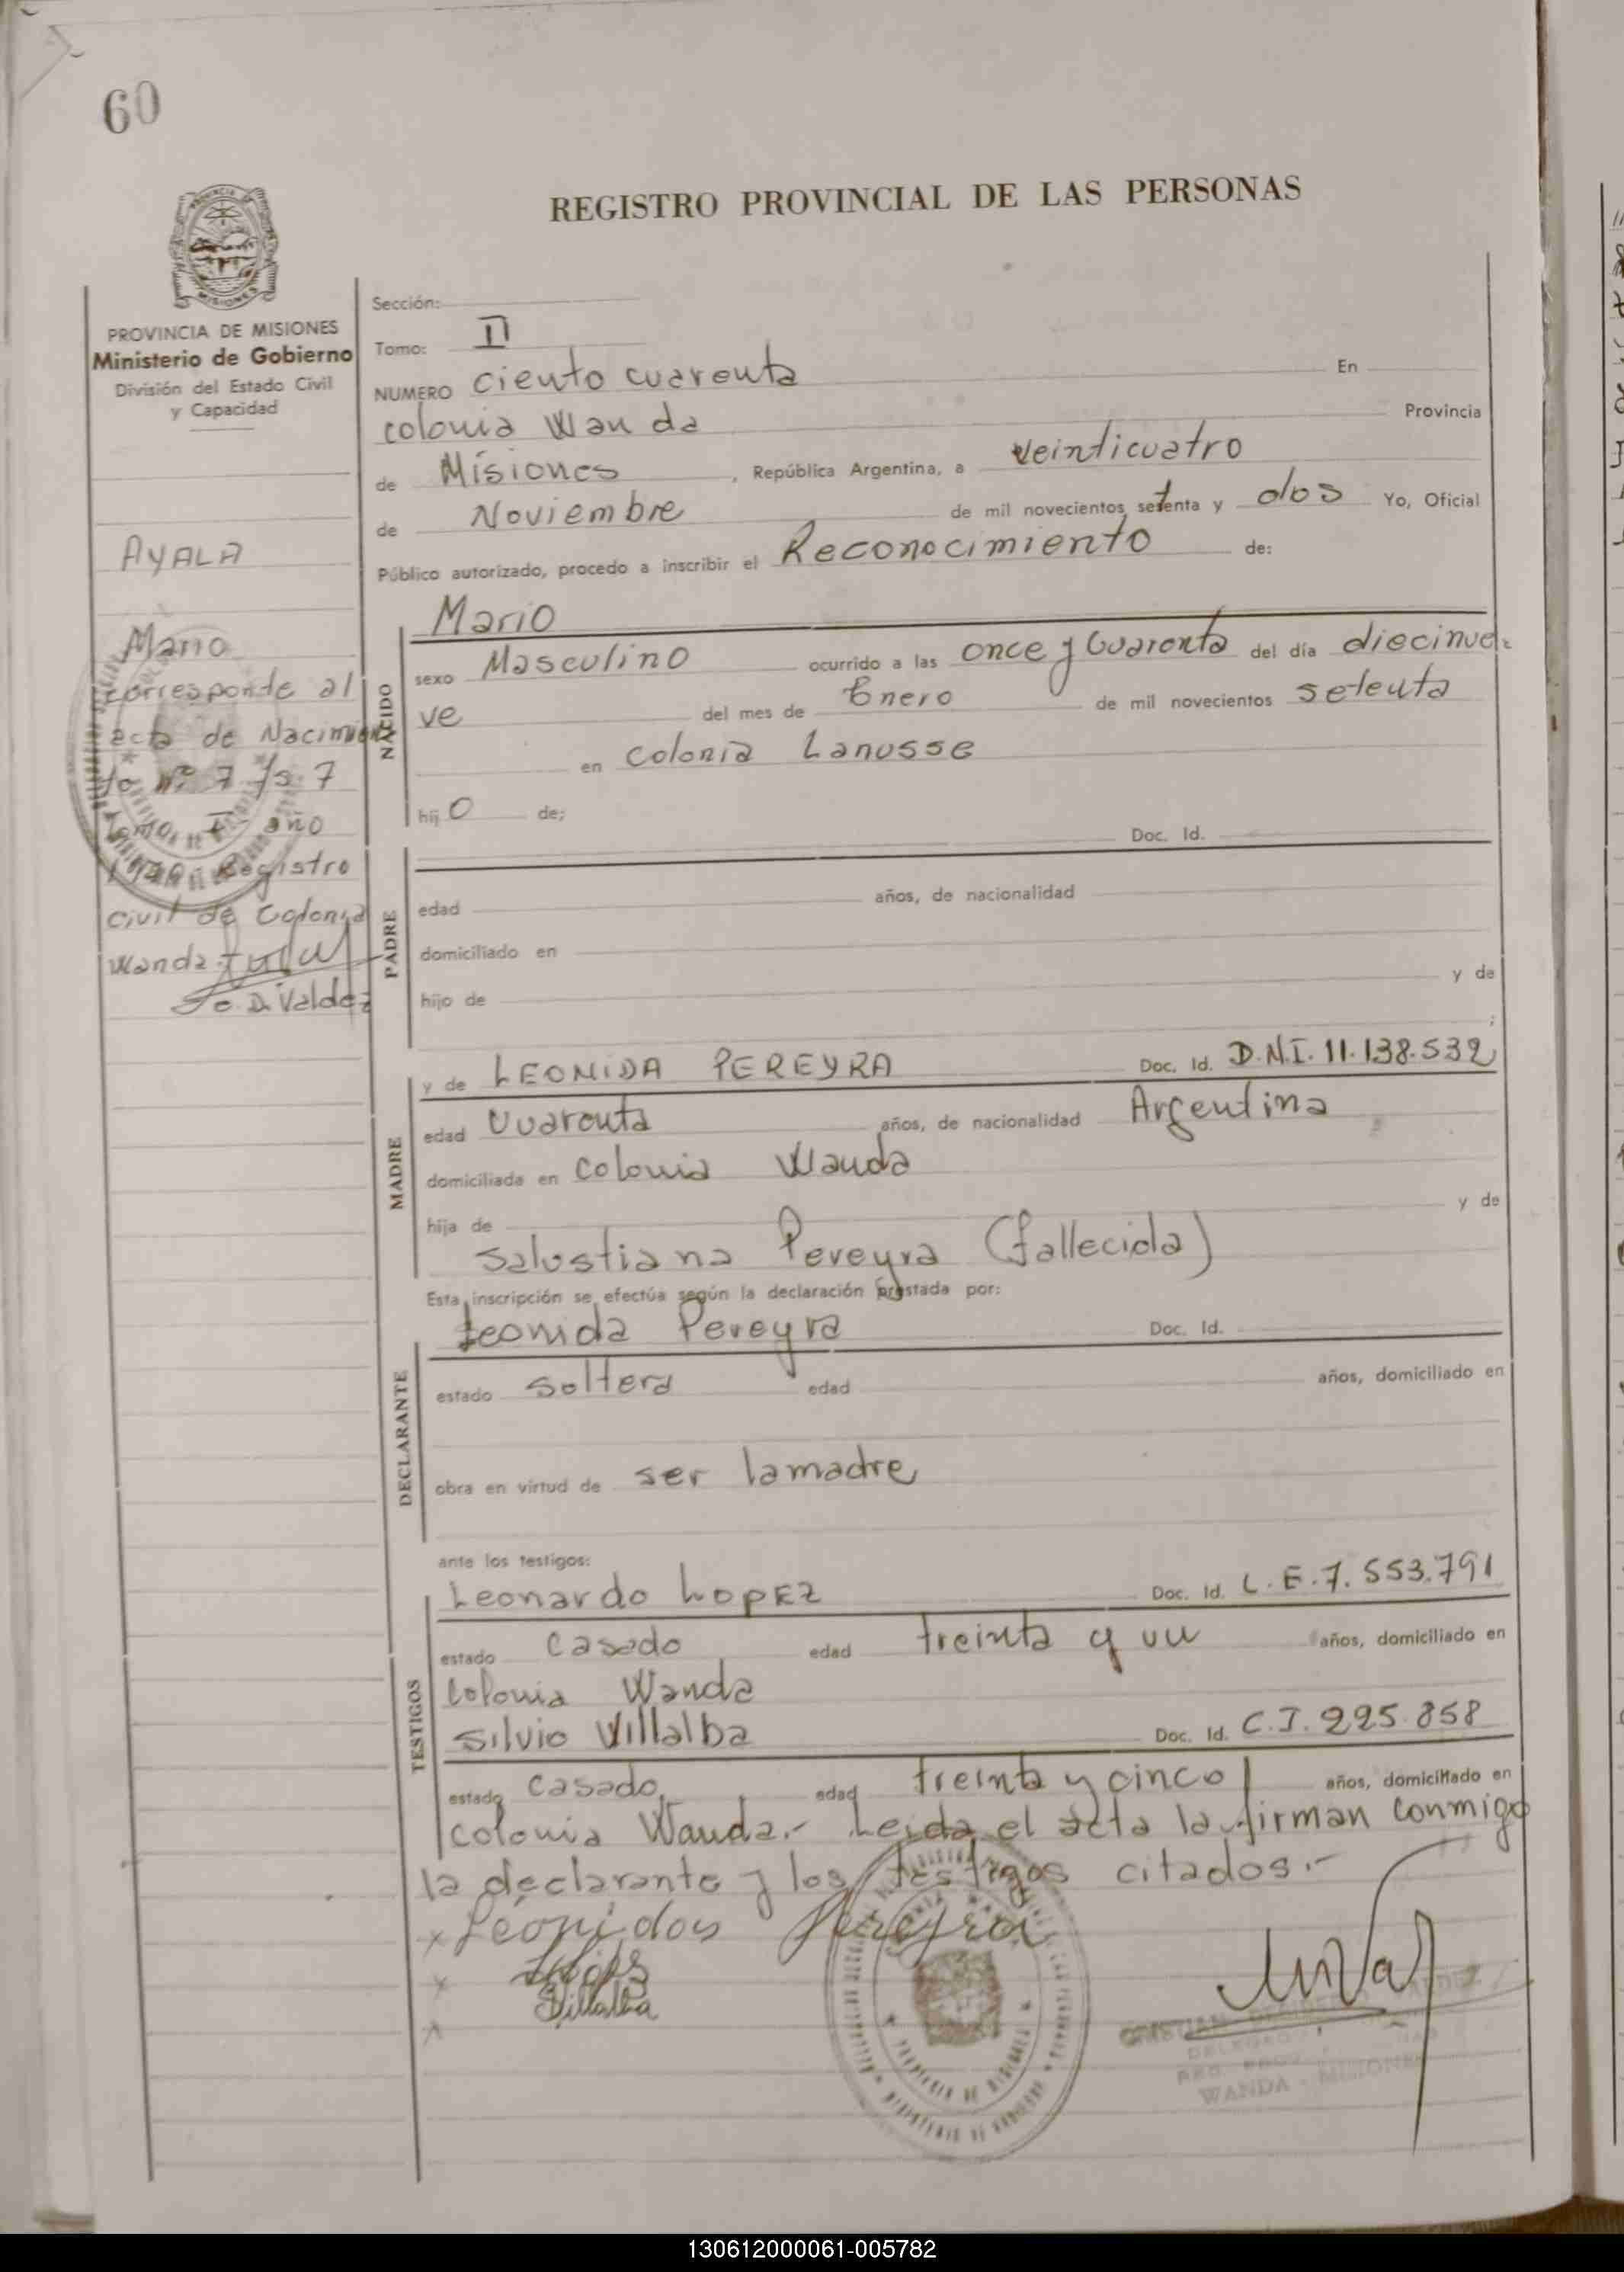 60
REGISTRO PROVINCIAL DE LAS PERSONAS
PROVINCIA DE MISIONES
Ministerio de Gobierno
División del Estado Civil
y Capacidad
AYALA
Mario
corresponde al
acta de Nacimien
to nº 7 fs. 7
tomo I año
1970 Registro
Civil de Colonia
Wanda.
D. Valdez
Sección:
Tomo: II
NUMERO ciento cuarenta En
colonia Wanda Provincia
de Misiones, República Argentina, a veinticuatro
de Noviembre de mil novecientos setenta y dos Yo, Oficial
Público autorizado, procedo a inscribir el Reconocimiento de:
NACIDO
Mario
sexo Masculino ocurrido a las once y Cuarenta del día diecinue
ve del mes de Enero de mil novecientos setenta
en colonia Lanusse
hijo de;
PADRE
Doc. Id.
edad años, de nacionalidad
domiciliado en
hijo de y de
;
MADRE
y de LEONIDA PEREYRA Doc. Id. D.N.I. 11.138.532
edad Cuarenta años, de nacionalidad Argentina
domiciliada en colonia Wanda
hija de y de
Salustiana Pereyra (fallecida)
Esta inscripción se efectúa según la declaración prestada por:
DECLARANTE
Leonida Pereyra Doc. Id.
estado soltera edad años, domiciliado en
obra en virtud de ser la madre
ante los testigos:
TESTIGOS
Leonardo LOPEZ Doc. Id. L.E. 7.553.791
estado Casado edad treinta y un años, domiciliado en
Colonia Wanda
Silvio Villalba Doc. Id. C.I. 225.858
estado Casado edad treinta y cinco años, domiciliado en
colonia Wanda.- Leida el acta la firman conmigo
la declarante y los testigos citados.-
x Leonidas Pereyra
x
Villalba
x
CRISTIAN
WANDA - MISIONES
130612000061-005782